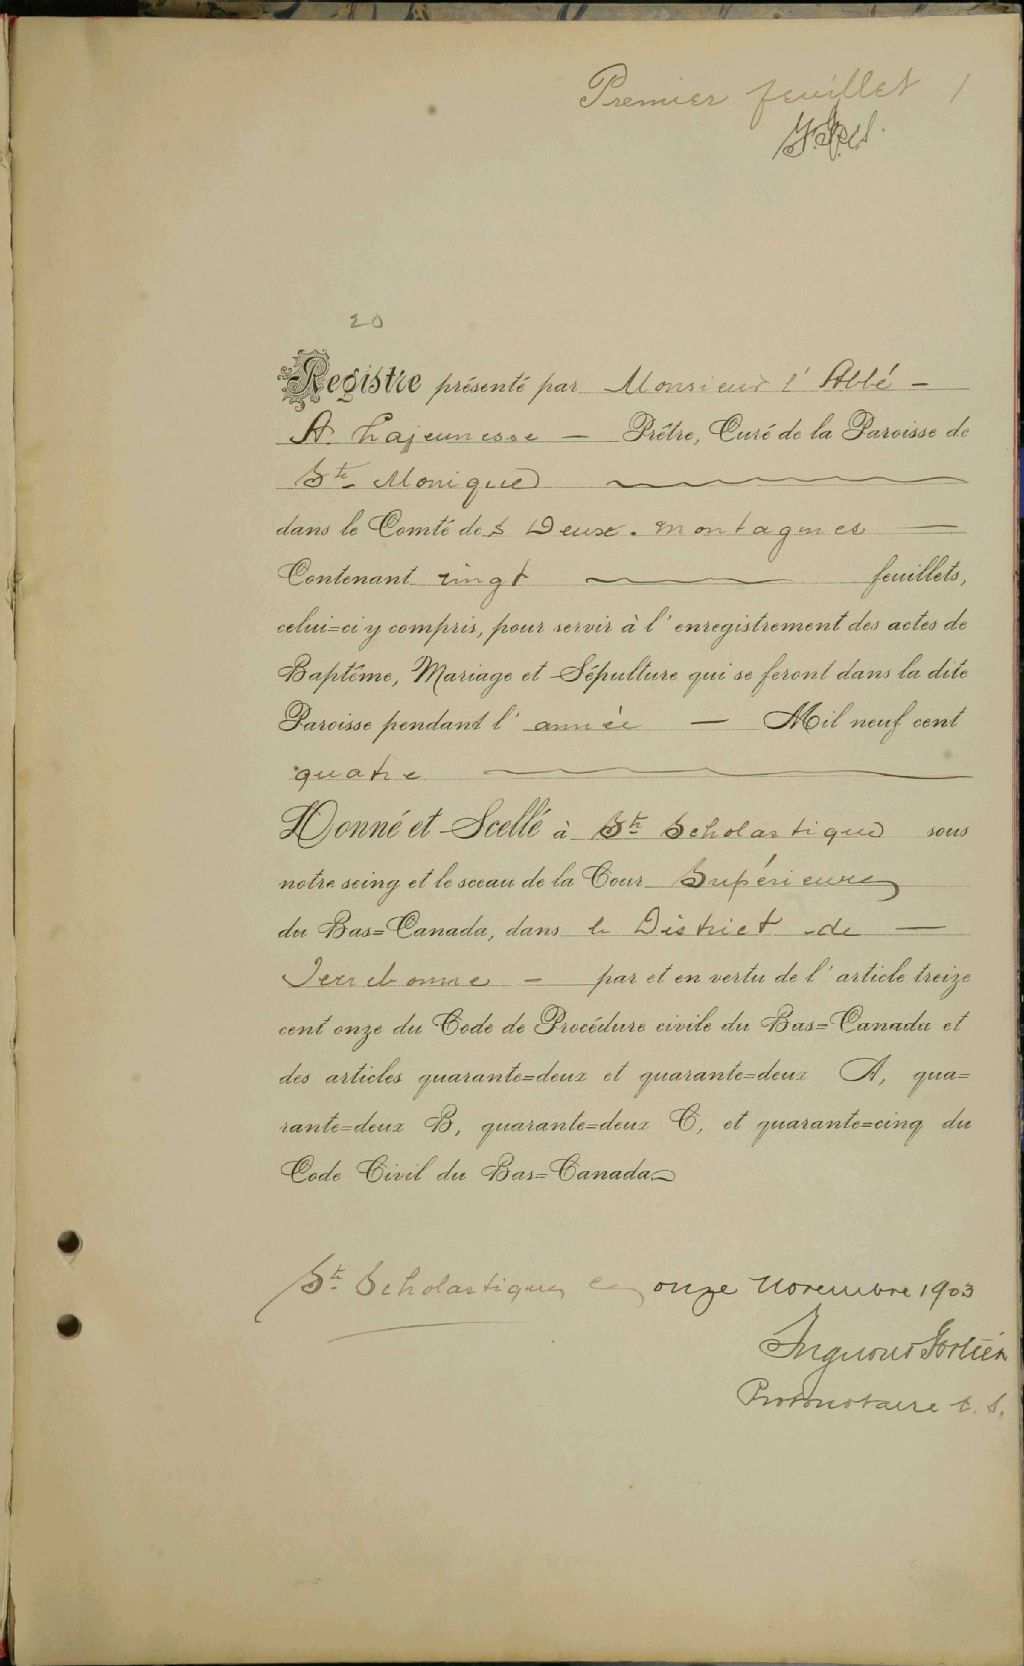 Premier feuillet 1
20
Registre présenté par Monsieur l'Abbé —
A. Lajeunesse — Prêtre, Curé de la Paroisse de
Ste Monique
dans le Comté des Deux-Montagnes —
Contenant vingt — feuillets,
celui=ci y compris, pour servir à l'enregistrement des actes de
Baptême, Mariage et Sépulture qui se feront dans la dite
Paroisse pendant l'année — Mil neuf cent
quatre
Donné et Scellé à Ste Scholastique sous
notre seing et le sceau de la Cour Supérieure
du Bas=Canada, dans le District de —
Terrebonne — par et en vertu de l'article treize
cent onze du Code de Procédure civile du Bas=Canada et
des articles quarante=deux et quarante=deux A, qua=
rante=deux B, quarante=deux C, et quarante=cinq du
Code Civil du Bas=Canada.
Ste Scholastique ce onze Novembre 1903
Fortier
Protonotaire C. S.